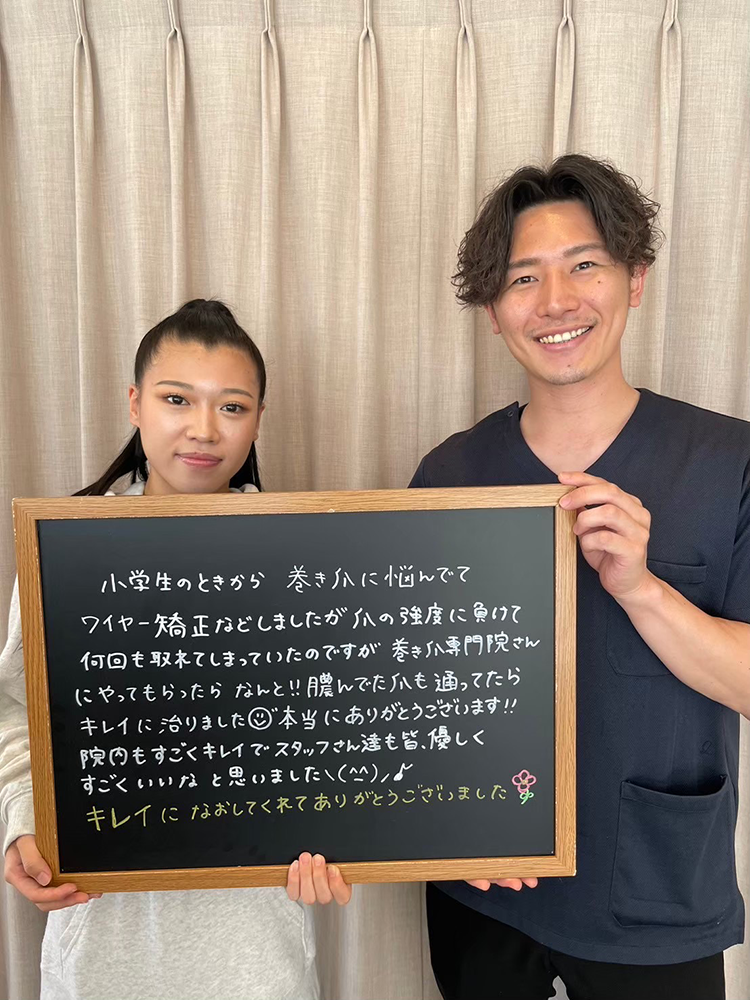 小学生のときから 巻き爪に悩んでて
ワイヤー矯正などしましたが爪の強度に負けて
何回も取れてしまっていたのですが 巻き爪専門院さん
にやってもらったら なんと!!膿んでた爪も通ってたら
キレイに治りました 本当にありがとうございます!!
院内もすごくキレイでスタッフさん達も皆、優しく
すごくいいなと思いました\(^^)/♪
キレイになおしてくれてありがとうございました